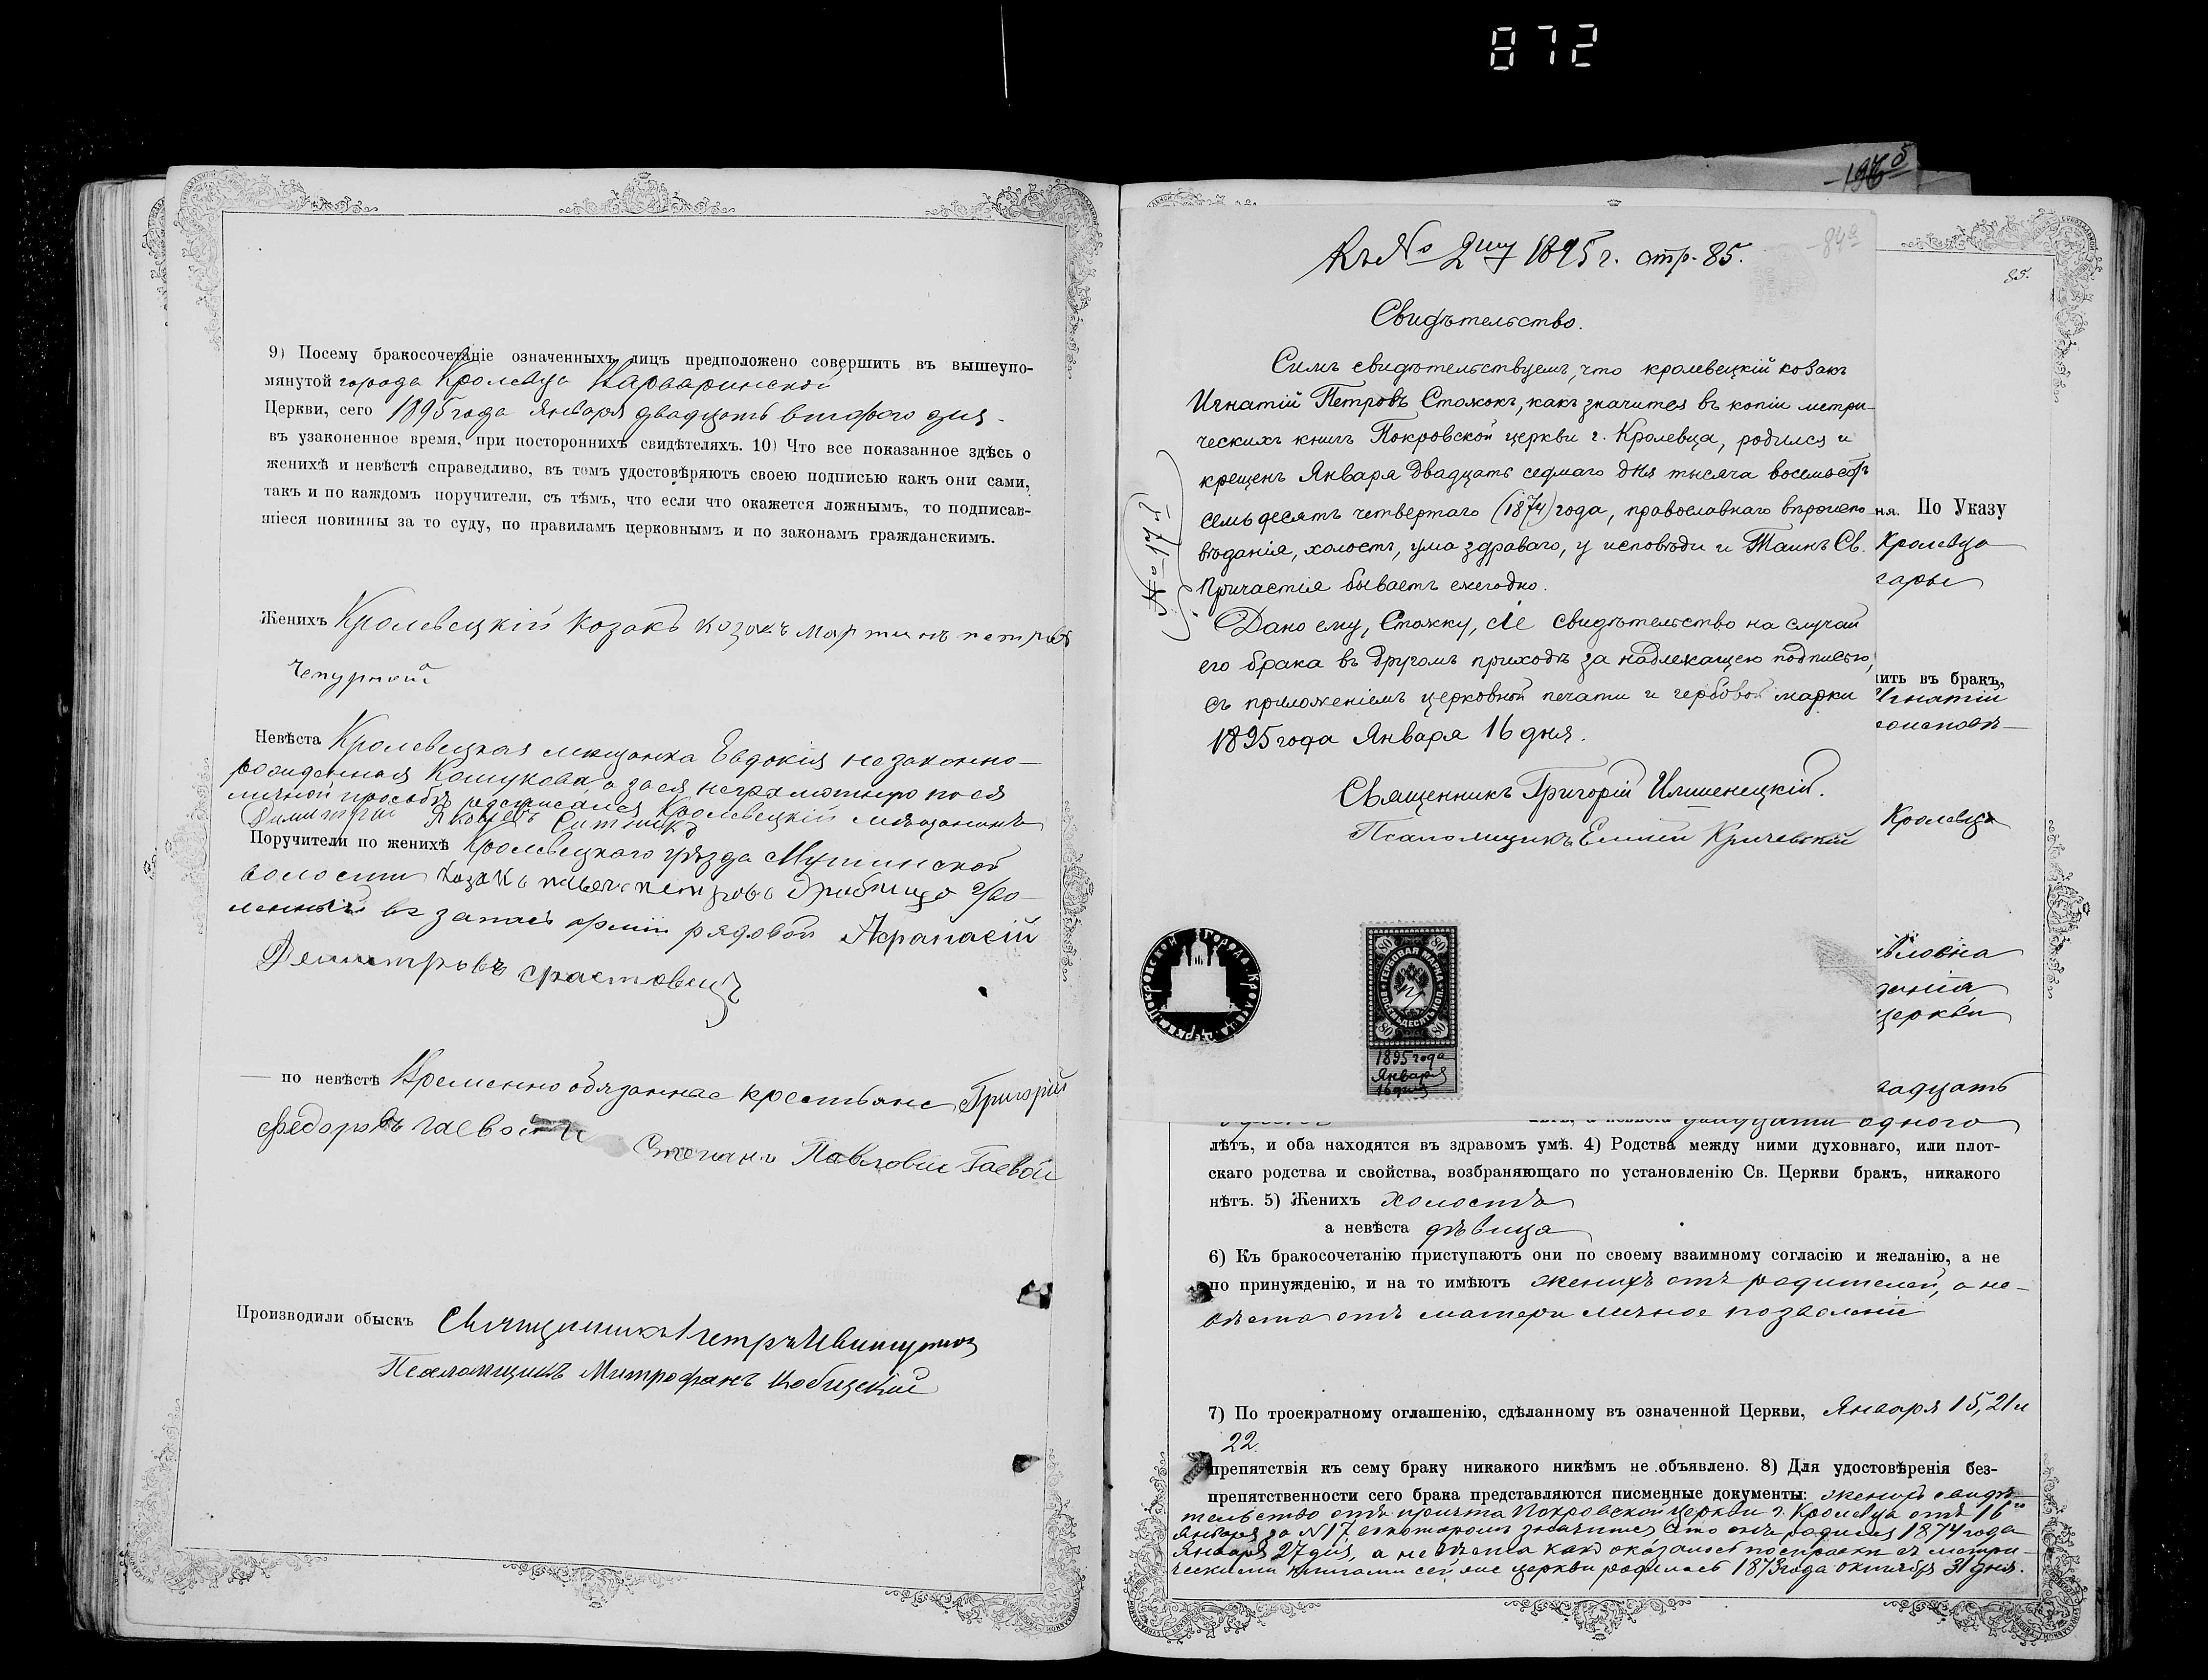 872
9) Посему бракосочетаніе означенныхъ лицъ предположено совершить въ вышеупо-
мянутой города Кролевца Варваринской
Церкви, сего 1895 года Января двадцать втораго дня.
въ узаконенное время, при постороннихъ свидѣтеляхъ. 10) Что все показанное здѣсь о
женихѣ и невѣстѣ справедливо, въ томъ удостовѣряютъ своею подписью какъ они сами,
такъ и по каждомъ поручители, съ тѣмъ, что если что окажется ложнымъ, то подписав-
шіеся повинны за то суду, по правиламъ церковнымъ и по законамъ гражданскимъ.
Женихъ Кролевецкій козакъ козакъ Мартинъ петровъ
Чепурной
Невѣста Кролевецкая мѣщанка Евдокія незаконно-
рожденная Кошукова, а за ея неграмотную по ея
личной просьбѣ росписался Кролевецкій мѣщанинъ
Димитрій Яковлевъ Ситнико
Поручители по женихѣ Кролевецкаго уѣзда Мутинской
волости козакъ петровъ уво-
ленный въ запасъ арміи рядовой Афанасій
Демитровъ
— по невѣстѣ Временно обязанные крестьяне Григорій
федоровъ гаевой
Степанъ Павловъ Гаевой
Производили обыскъ Священникъ Петръ
Псаломщикъ Митрофанъ Кобицскій
-84а
Къ № 2му 1895 г. стр. 85.
Свидѣтельство.
Симъ свидѣтельствуемъ, что кролевецкій козакъ
Игнатій Петровъ Стожокъ, какъ значится въ копіи метри-
ческихъ книгъ Покровской церкви г. Кролевца, родился и
крещенъ Января двадцать седмаго дня тысяча восемьсотъ
семьдесятъ четвертаго (1874) года, православнаго вѣроиспо-
вѣданія, холостъ, ума здраваго, у исповѣди и Таинъ Св.
Причастія бываетъ ежегодно.
Дано ему, Стожку, сіе свидѣтельство на случай
его брака въ другомъ приходѣ за надлежащею подписью,
съ приложеніемъ церковной печати и гербовой марки
1895 года Января 16 дня.
№ 17й
Священникъ Григорій Имшенецкій.
Псаломщикъ Емилій Кричевскій
Покровской города Кролевца церкви
80 80
ГЕРБОВАЯ МАРКА
ВОСЕМЬДЕСЯТЪ КОП.
80 80
1895 года
Января
16 дня
85.
ня. По Указу
Кролевца
ить въ бракъ,
Игнатій
Кролевца
вловна
церкви
вадцать
лѣтъ, а невѣста двадцати одного
лѣтъ, и оба находятся въ здравомъ умѣ. 4) Родства между ними духовнаго, или плот-
скаго родства и свойства, возбраняющаго по установленію Св. Церкви бракъ, никакого
нѣтъ. 5) Женихъ холостъ
а невѣста дѣвица
6) Къ бракосочетанію приступаютъ они по своему взаимному согласію и желанію, а не
по принужденію, и на то имѣютъ женихъ отъ родителей, а не-
вѣста отъ матери личное позволеніе
7) По троекратному оглашенію, сдѣланному въ означенной Церкви, Января 15, 21 и
22.
препятствія къ сему браку никакого никѣмъ не объявлено. 8) Для удостовѣренія без-
препятственности сего брака представляются писменные документы: женихъ свидѣ-
тельство отъ причта Покровской церкви г. Кролевца отъ 16го
Января за № 17 въ которомъ значится что онъ родился 1874 года
Января 27 дня, а невѣста какъ оказалось по справкѣ съ метри-
ческими книгами сей же церкви родилась 1873 года октября 31 дня.